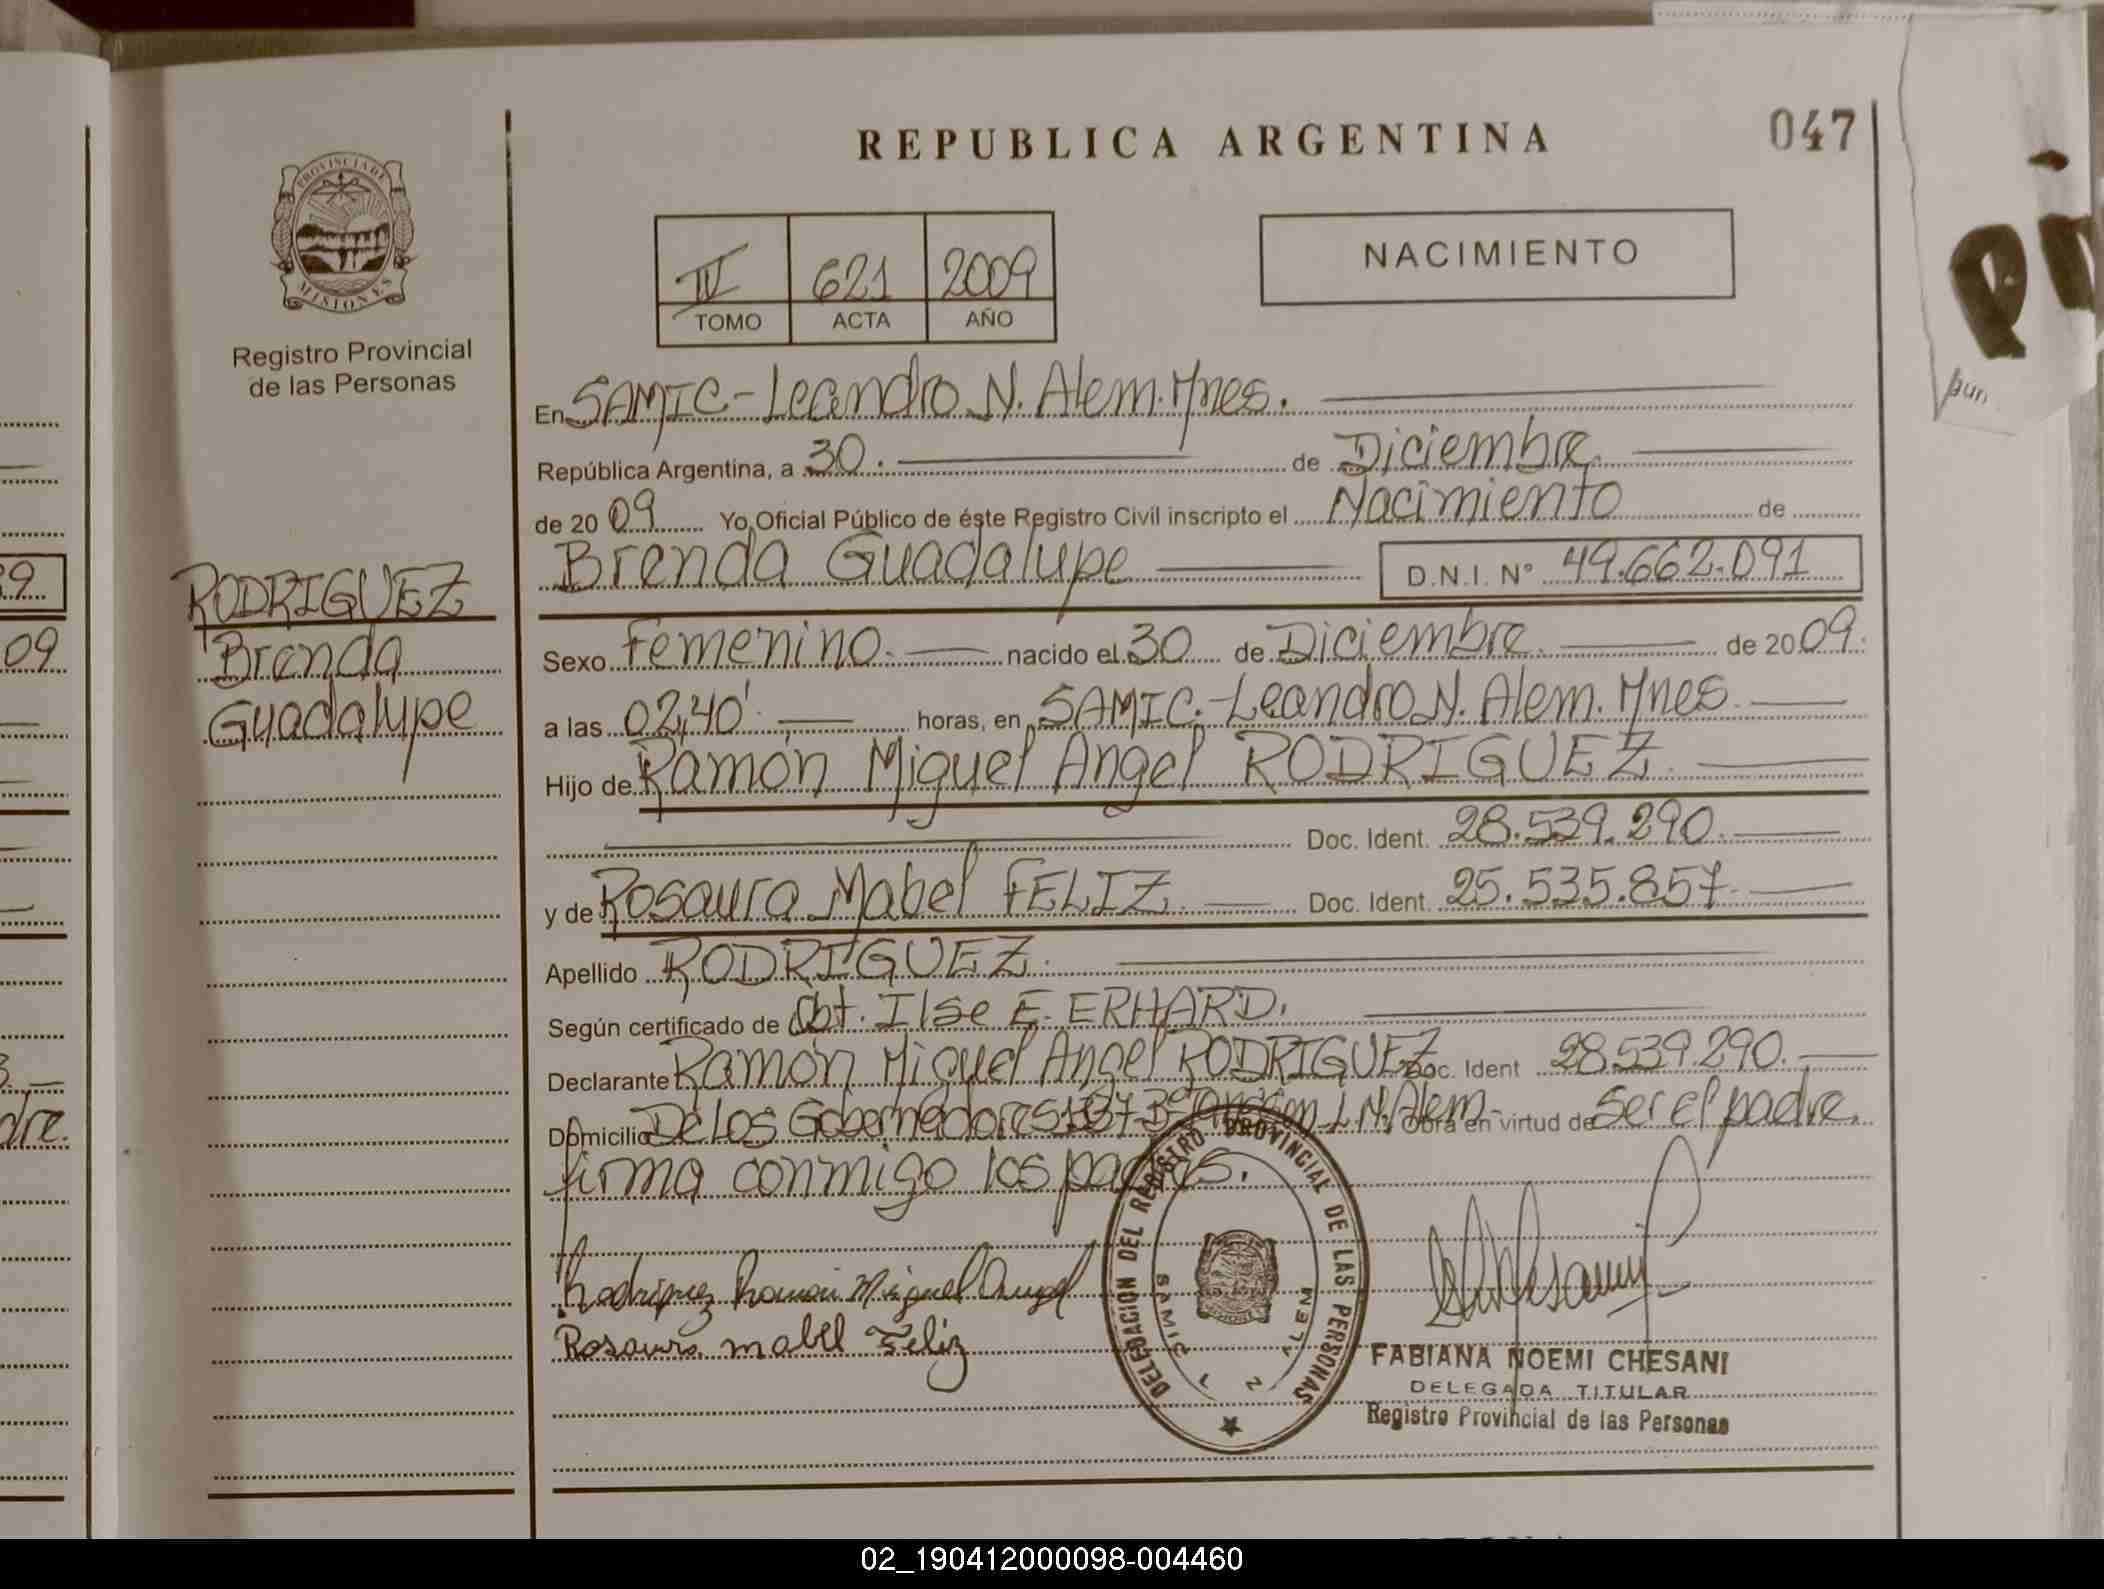 REPUBLICA ARGENTINA
047
PROVINCIA DE
MISIONES
Registro Provincial
de las Personas
IV 621 2009
TOMO ACTA AÑO
NACIMIENTO
En SAMIC-Leandro N. Alem. Mnes.
República Argentina, a 30. de Diciembre.
de 2009 Yo, Oficial Público de éste Registro Civil inscripto el Nacimiento de
Brenda Guadalupe D.N.I. N° 49.662.091
RODRIGUEZ
Brenda
Guadalupe
Sexo Femenino. nacido el 30 de Diciembre. de 2009.
a las 02,40'. horas, en SAMIC.-Leandro N. Alem. Mnes.
Hijo de Ramón Miguel Angel RODRIGUEZ.
Doc. Ident. 28.539.290.
y de Rosaura Mabel FELIZ. Doc. Ident. 25.535.857.
Apellido RODRIGUEZ.
Según certificado de Obt. Ilse E. ERHARD.
Declarante Ramón Miguel Angel RODRIGUEZ Doc. Ident 28.539.290.
Domicilio De Los Gobernadores L.N. Alem. Obra en virtud de Ser el padre.
firma conmigo los padres.
Rodriguez Ramon Miguel Angel
Rosaura mabel Feliz
DELEGACION DEL REGISTRO PROVINCIAL DE LAS PERSONAS
SAMIC L N ALEM
FABIANA NOEMI CHESANI
DELEGADA TITULAR
Registro Provincial de las Personas
39
09
dre.
02_190412000098-004460